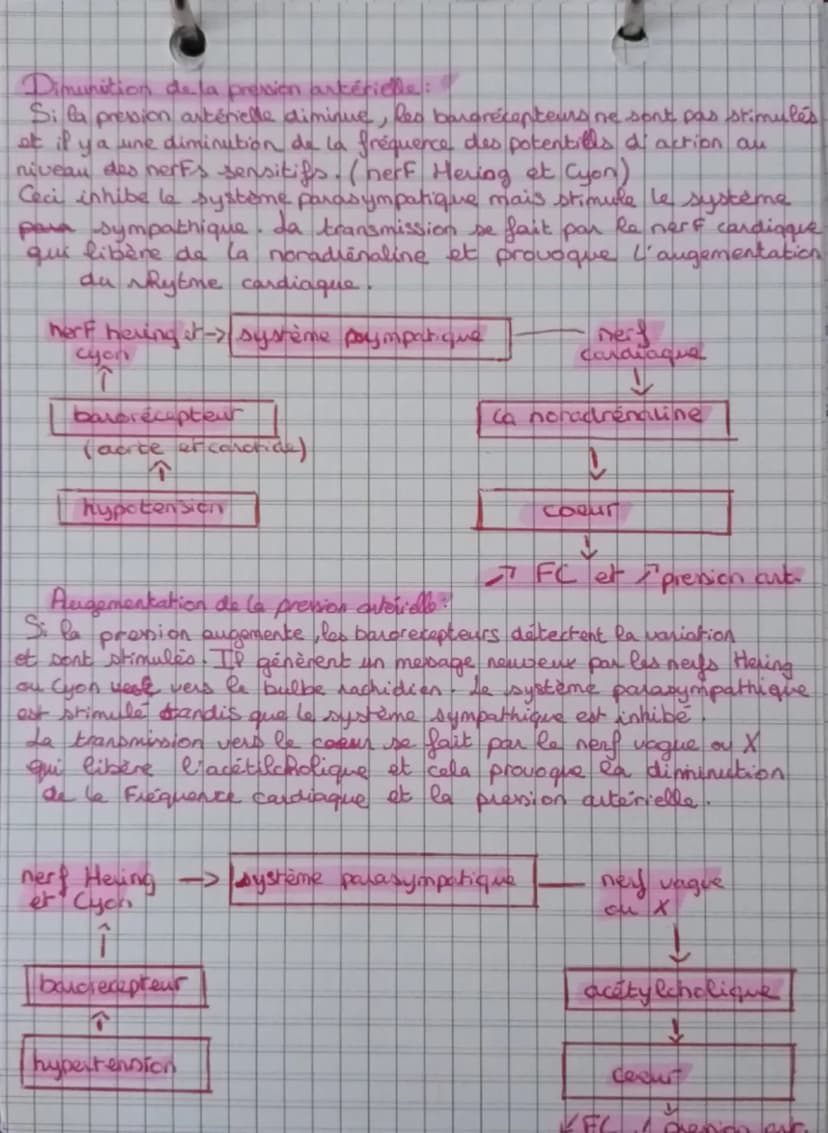 Dimunition de la pression artérielle :
Si la pression artérielle diminue, les barorécepteurs ne sont pas stimulés
et il y a une diminution de la fréquence des potentiels d'action au
niveau des nerfs sensitifs. (nerf Hering et Cyon)
Ceci inhibe le système parasympatique mais stimule le système
sympathique. La transmission se fait par le nerf cardiaque
qui libère de la noradrénaline et provoque l'augementation
du Rhytme cardiaque.
nerf hering et → système sympatique — nerf
cyon cardiaque
↑ ↓
barorécepteur la noradrénaline
(aorte et carotide)
↑ ↓
hypotension coeur
↓
↗ FC et ↗ pression art.
Augementation de la pression artérielle :
Si la pression augmente, les barorecepteurs détectent la variation
et sont stimulés. Il génèrent un message nerveux par les nerfs Hering
ou Cyon vers le bulbe rachidien. Le système parasympathique
est stimulé tandis que le système sympathique est inhibé.
La transmission vers le coeur se fait par le nerf vague ou X
qui libère l'acétilcholique et cela provoque la diminution
de la Fréquence cardiaque et la pression artérielle.
nerf Hering → système parasympatique — nerf vague
et Cyon ou X
↑ ↓
barorecepteur acétylcholique
↑ ↓
hypertension coeur
↓
↙ FC pression art.